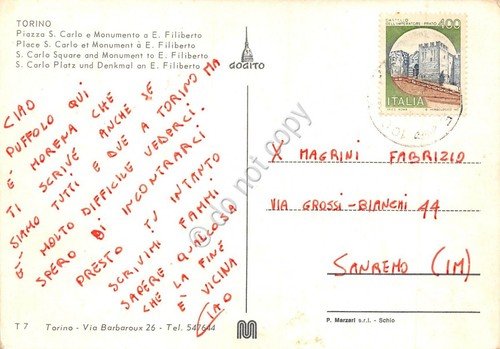 TORINO
Piazza S. Carlo e Monumento a E. Filiberto
Place S. Carlo et Monument à E. Filiberto
S. Carlo Square and Monument to E. Filiberto
S. Carlo Platz und Denkmal an E. Filiberto
GOGITO
CIAO
PUFFOLO QUI
È MORENA CHE
TI SCRIVE ANCHE SE
SIAMO TUTTI E DUE A TORINO MA
È MOLTO DIFFICILE VEDERCI.
SPERO DI INCONTRARCI
PRESTO TU INTANTO
SCRIVIMI FAMMI
SAPERE QUALCOSA
CHE LA FINE
È VICINA
CIAO
400
ITALIA
X MAGRINI FABRIZIO
VIA GROSSI-BIANCHI 44
SANREMO (IM)
do not copy
T 7 Torino - Via Barbaroux 26 - Tel. 547644
M
P. Marzari s.r.l. - Schio